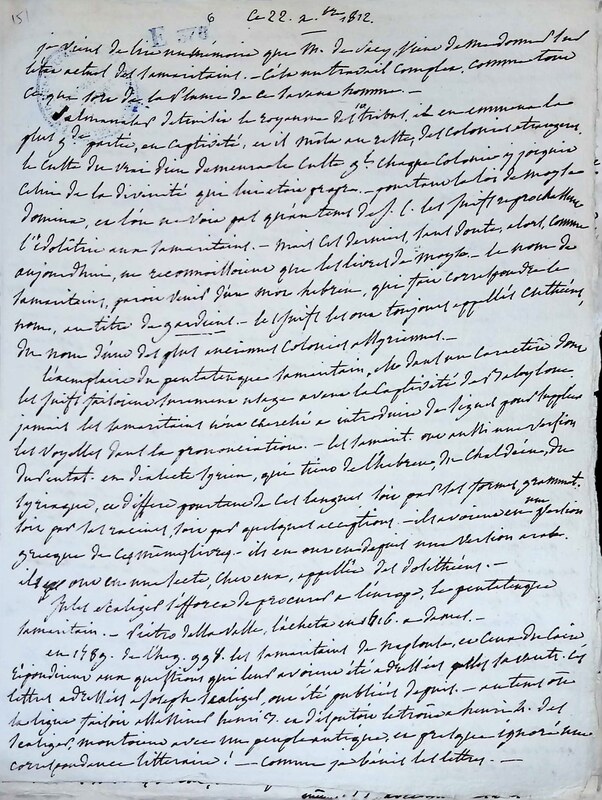 151 6 Ce 22. x.bre 1812.
E 378
je viens de lire un mémoire que M. de Sacy, vient de me donner sur
l'état actuel des Samaritains. - C'est un travail complet, comme tout
ce qui sort de la plume de ce savant homme. -
Salmanasar détruisit le Royaume des 10 tribus, il en emmena la
plus gde partie, en captivité, et il mêla au reste, des Colonies étrangères
le culte du vrai dieu demeura le culte gl. Chaque Colonie y joignit
celui de la divinité qui lui était propre. - pourtant la loi de moyse
domina, et l'on ne voit pas qu'au tems de J. C. les juifs reprochassent
l'idolâtrie aux Samaritains. - mais ces derniers, sans doute, alors, comme
aujourdhui, ne reconnoissoient que les livres de moyse. - le nom de
Samaritains, paroit venir d'un mot hébreu, qui fait correspondre le
nom, au titre de gardiens. - les juifs les ont toujours appellés Cuthéens,
du nom d'une des plus anciennes Colonies assyriennes. -
l'exemplaire du pentateuque Samaritain, est dans un caractère dont
les juifs faisoient surement usage avant la Captivité de Babylone,
jamais les Samaritains n'ont cherché à introduire de signes pour suppléer
les voyelles dans la prononciation. - les Samarit. ont aussi une version
du pentat. en dialecte Syrien, qui tient de l'hébreu, du Chaldéen, du
Syriaque, et diffère pourtant de ces langues soit par ses formes grammat.
soit par ses racines, soit par quelques acceptions. - ils avoient eu une version
grecque de ces mêmes livres. - ils en ont eu depuis une version arabe.
ils ont eu une secte, chez eux, appellée des dosithéens. -
Jules Scaliger s'efforça de procurer à l'europe, le pentateuque
Samaritain. - Pietro della Valle, l'acheta en 1616. a damas. -
en 1589. de l'heg. 998. les Samaritains de naplouse, et ceux du Caire
répondirent aux questions qui leur avoient été adressées par les savants. Ces
lettres adressées a Joseph Scaliger, ont été publiées depuis. - au tems où
la ligue faisoit assassiner henri 3. et disputoit le trône a henri 4. des
Scaliger entretenoient avec un peuple antique, et presque ignoré une
correspondance litteraire! - Comme je bénis les lettres. -